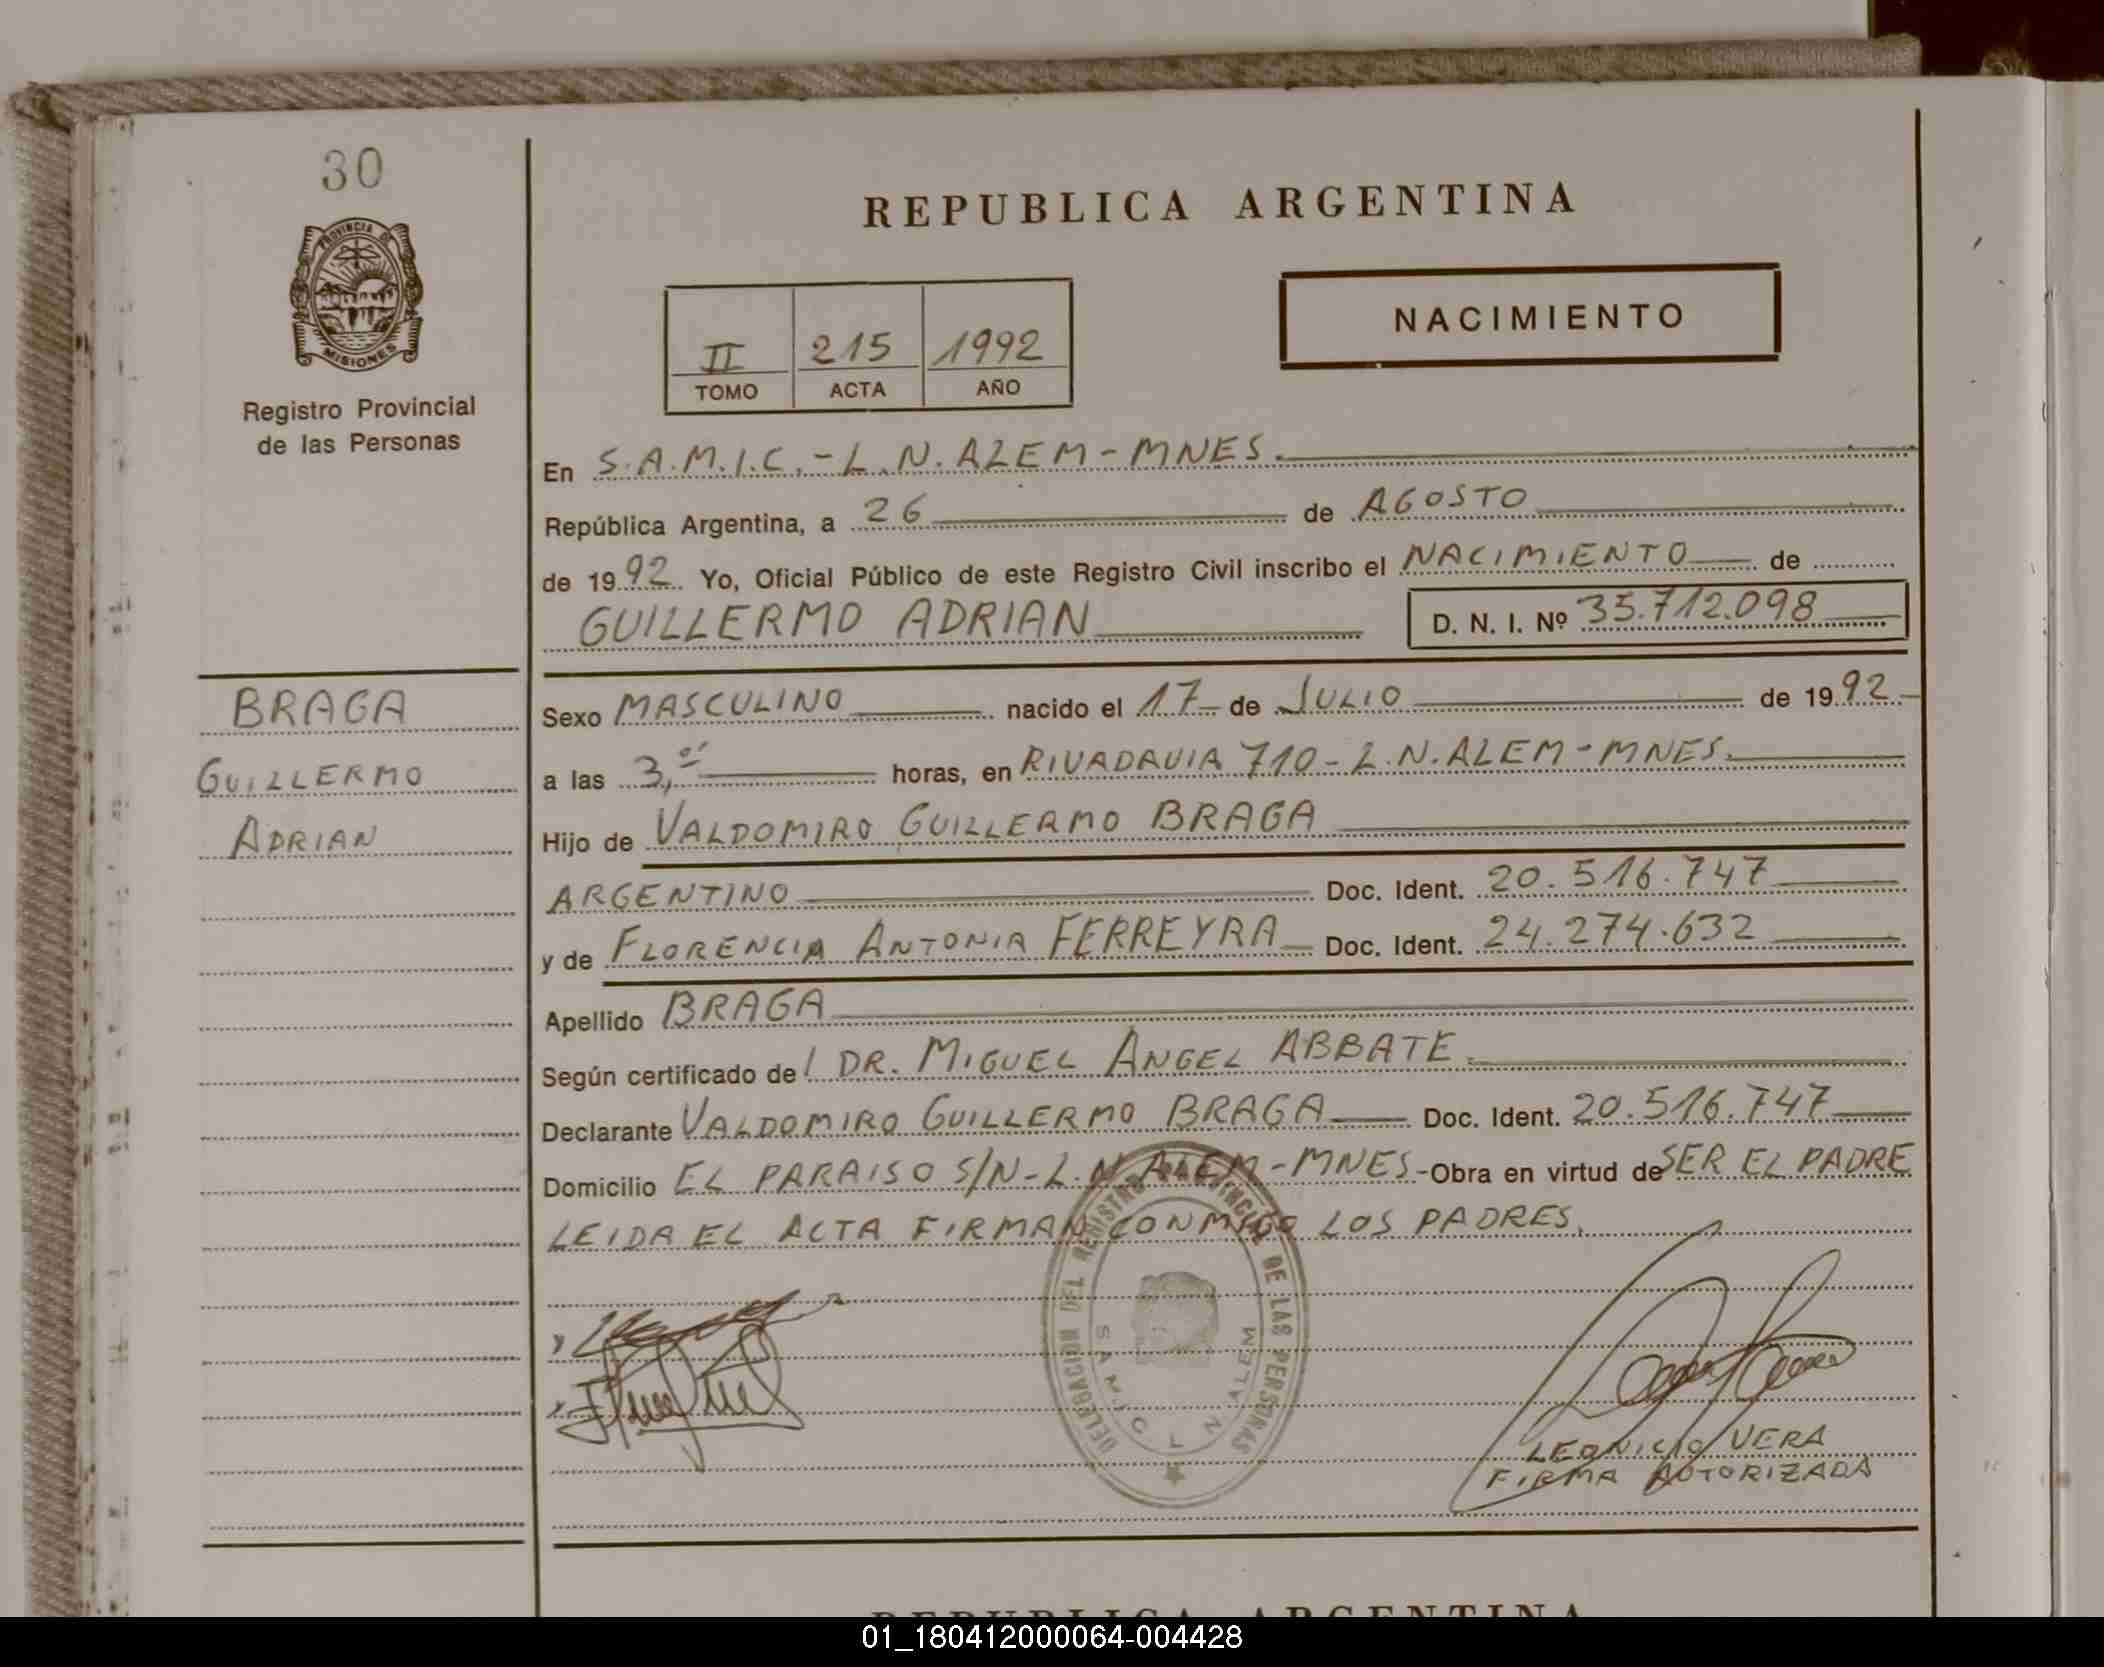 30
PROVINCIA DE
MISIONES
Registro Provincial
de las Personas
REPUBLICA ARGENTINA
II 215 1992
TOMO ACTA AÑO
NACIMIENTO
En S.A.M.I.C.-L.N.ALEM-MNES.
República Argentina, a 26 de AGOSTO
de 1992. Yo, Oficial Público de este Registro Civil inscribo el NACIMIENTO de
GUILLERMO ADRIAN D. N. I. Nº 35.712.098
BRAGA
GUILLERMO
ADRIAN
Sexo MASCULINO nacido el 17 de JULIO de 1992
a las 3, horas, en RIVADAVIA 710-L.N.ALEM-MNES.
Hijo de VALDOMIRO GUILLERMO BRAGA
ARGENTINO Doc. Ident. 20.516.747
y de FLORENCIA ANTONIA FERREYRA Doc. Ident. 24.274.632
Apellido BRAGA
Según certificado del DR. MIGUEL ANGEL ABBATE.
Declarante VALDOMIRO GUILLERMO BRAGA Doc. Ident. 20.516.747
Domicilio EL PARAISO S/N-L.N.ALEM-MNES-Obra en virtud de SER EL PADRE
LEIDA EL ACTA FIRMAN CONMIGO LOS PADRES.
DELEGACION DEL REGISTRO PROVINCIAL DE LAS PERSONAS
SAMIC L N ALEM
LEONICIO VERA
FIRMA AUTORIZADA
REPUBLICA ARGENTINA
01_180412000064-004428